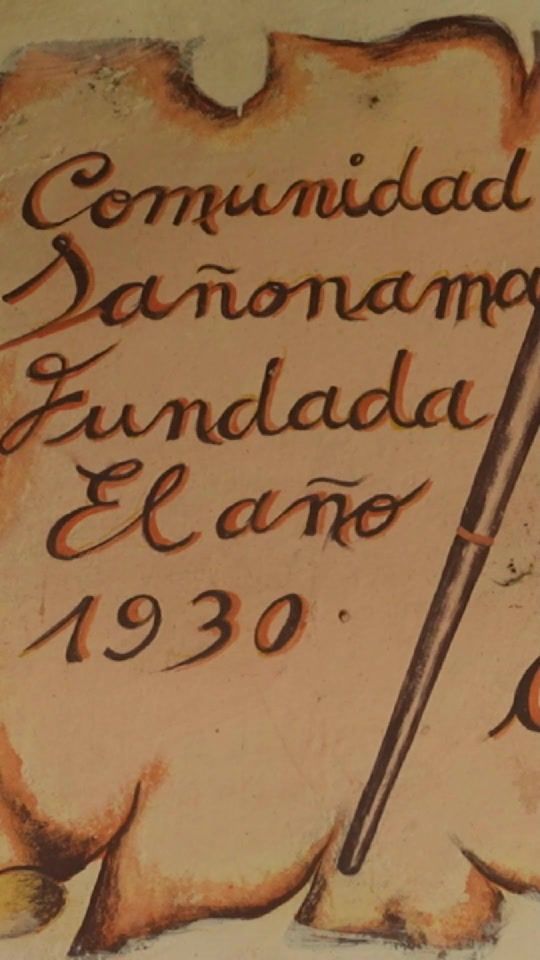 Comunidad
Sañonama
Fundada
El año
1930.